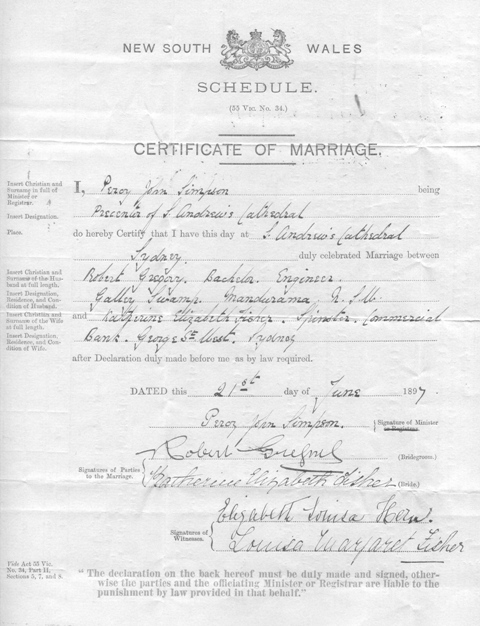 NEW SOUTH WALES
SCHEDULE.
(55 VIC. No. 34.)
CERTIFICATE OF MARRIAGE.
Insert Christian and Surname in full of Minister or Registrar.
I, Percy John Simpson being
Insert Designation.
Precentor of St Andrew's Cathedral
Place.
do hereby Certify that I have this day at St Andrew's Cathedral
Sydney duly celebrated Marriage between
Insert Christian and Surname of the Husband at full length.
Robert Gregory. Bachelor. Engineer.
Insert Designation, Residence, and Condition of Husband.
Galley Swamp. Mandurama, N.S.W.
Insert Christian and Surname of the Wife at full length.
and Katherine Elizabeth Fisher. Spinster. Commercial
Insert Designation, Residence, and Condition of Wife.
Bank. George St West. Sydney
after Declaration duly made before me as by law required.
DATED this 21st day of June 1897
Percy John Simpson. Signature of Minister or Registrar.
Robert (Bridegroom.)
Signatures of Parties to the Marriage.
Katherine Elizabeth Fisher (Bride.)
Elizabeth Louisa
Signatures of Witnesses.
Louisa Margaret Fisher
Vide Act 55 Vic. No. 34, Part II, Sections 5, 7, and 8.
"The declaration on the back hereof must be duly made and signed, other-
wise the parties and the officiating Minister or Registrar are liable to the
punishment by law provided in that behalf."